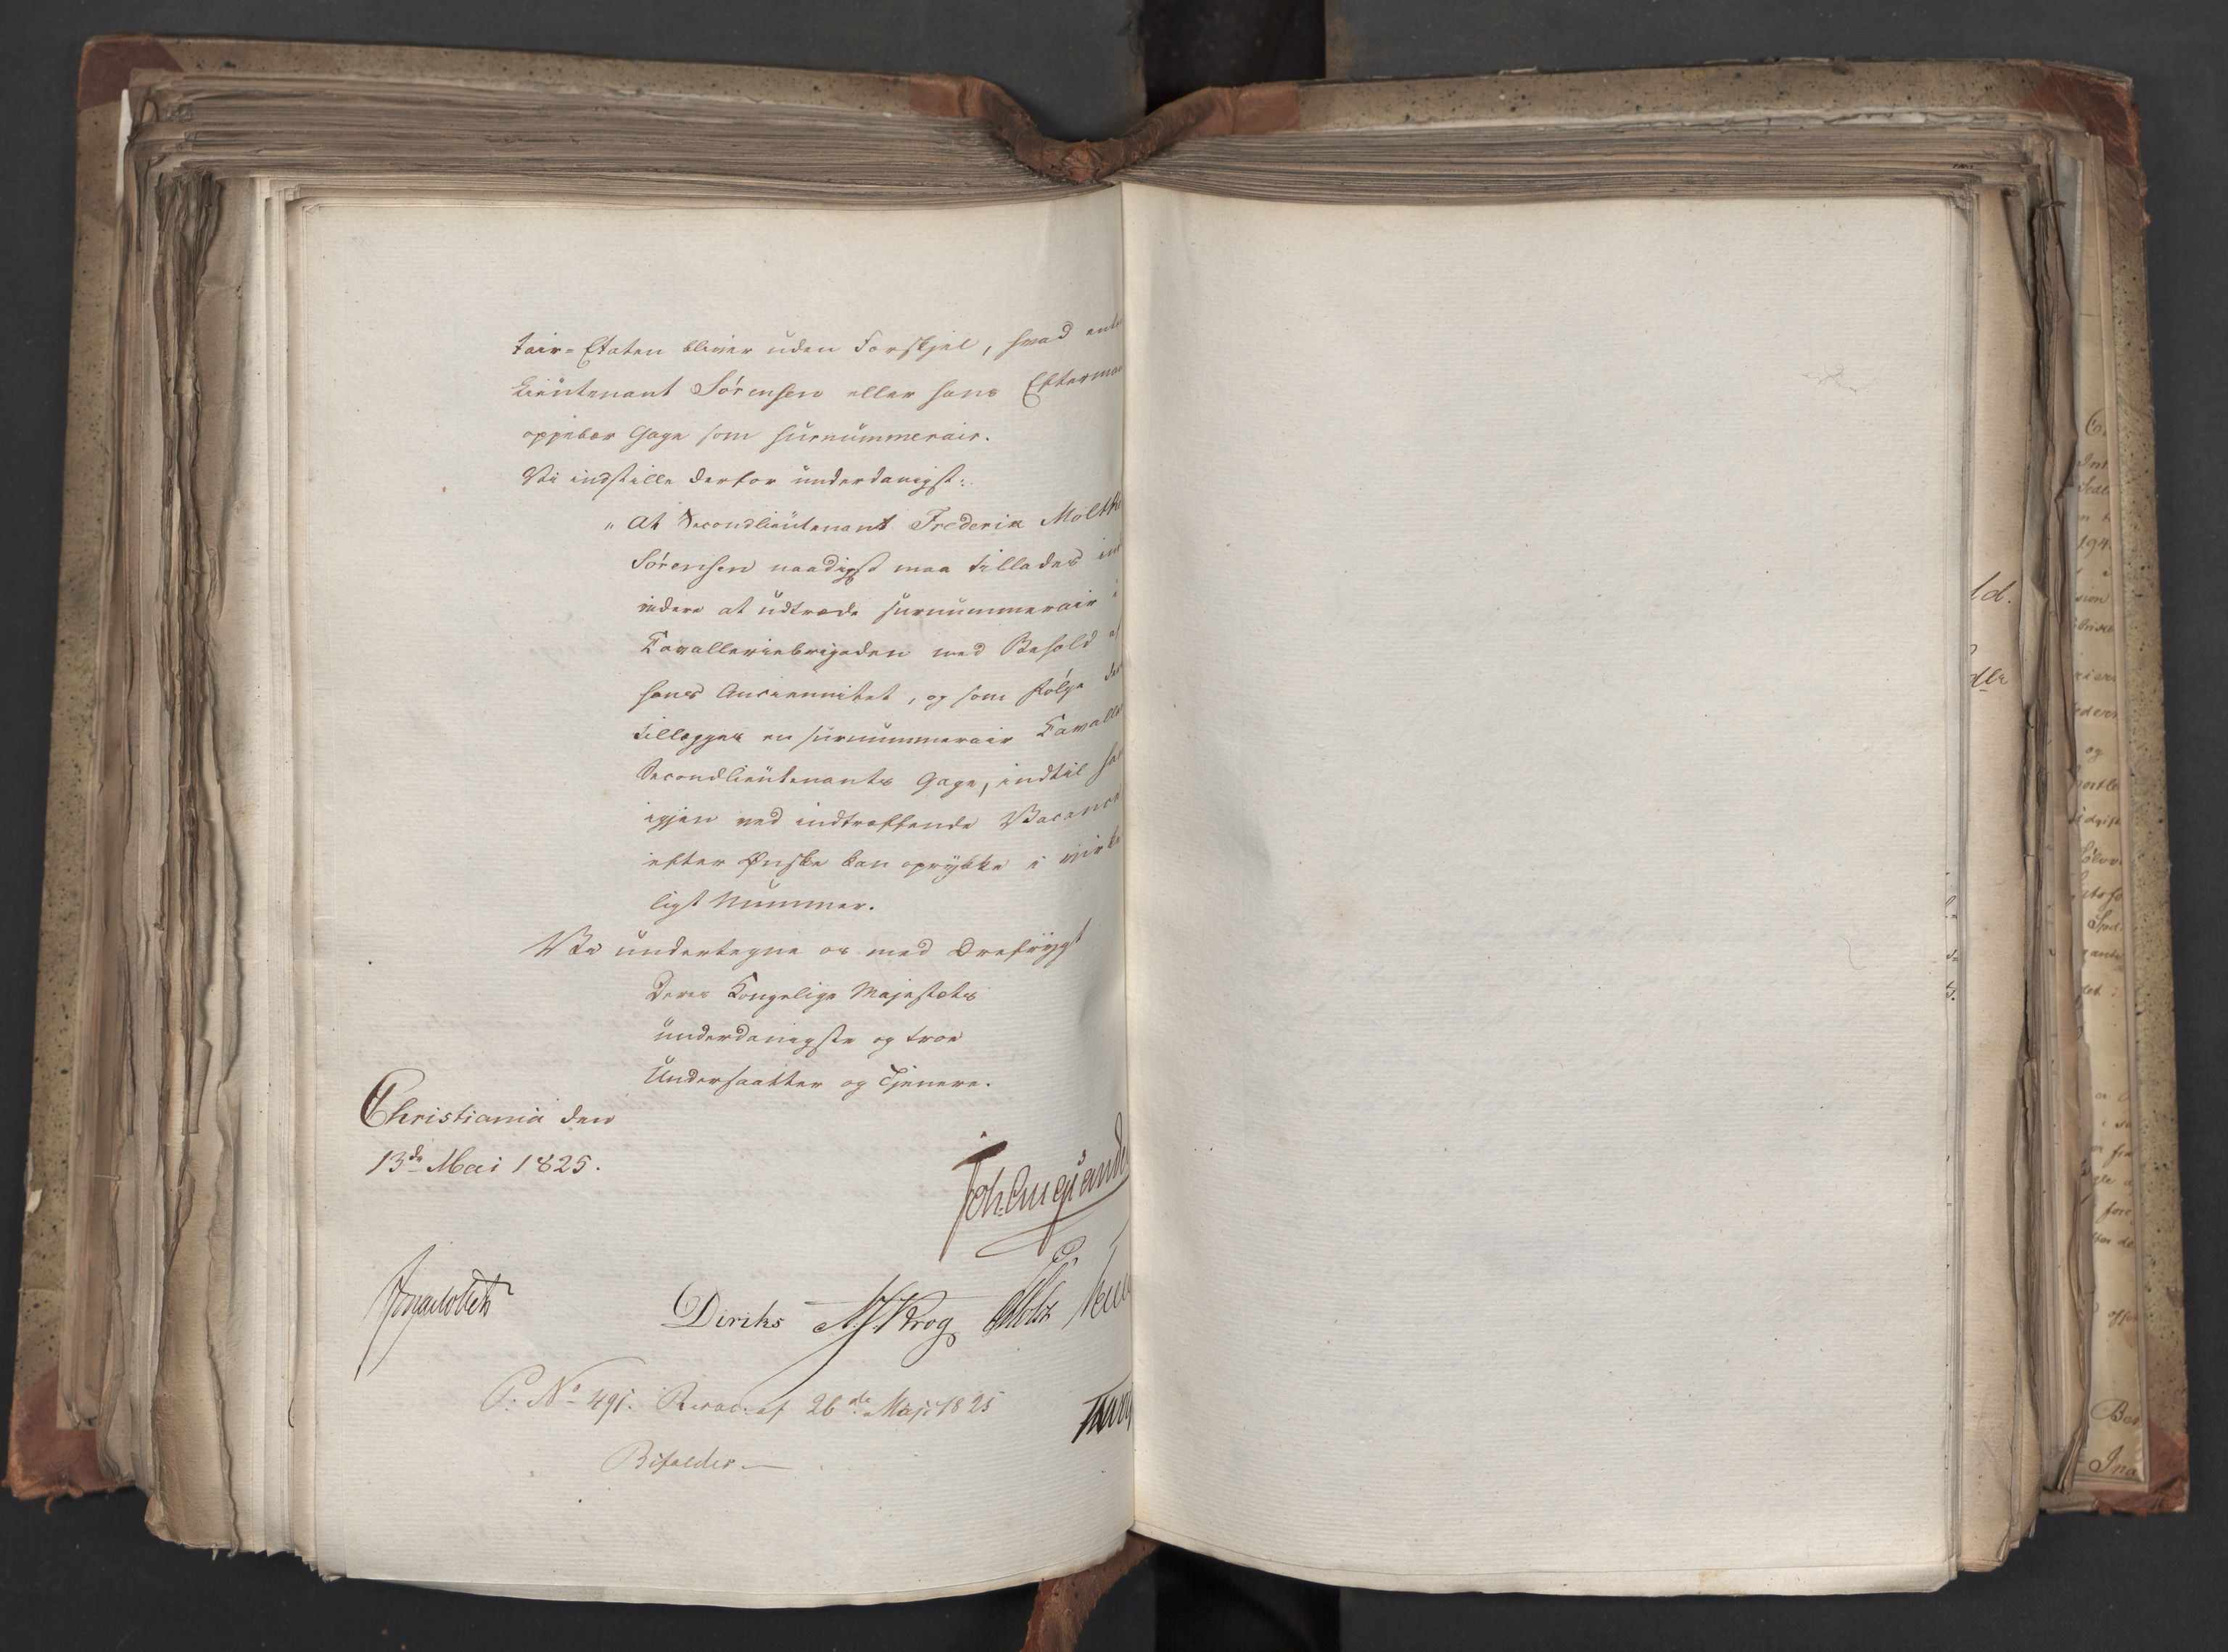 tair-Etaten bliver uden Forskjel, hvad enten
Lieutenant Sörensen eller hans Efterman
oppebær Gage som surnummerair.
Vi indstille derfor underdanigst:
"At Secondlieutenant Frederik Moltke
Sörensen naadigst maa tillades ind
videre at udtræde surnummerair i
Cavalleriebrigaden med Behold af
hans Anciennitet, og som Fölge der
tillægges en surnummerair Cavalle
Secondlieutenants Gage, indtil han
igjen ved indtræffende Vacance
efter Ønske kan oprykke i virke
ligt Nummer.
Vi undertegne os med Ærefrygt
Deres Kongelige Majestæts
underdanigste og troe
Undersaatter og Tjenere.
Christiania den
13de Mai 1825.
Joh. Aug. Sandels
Diriks N. J. Krog Holst
P. No 491. Resol. af 26de Maji 1825
Bifaldes.